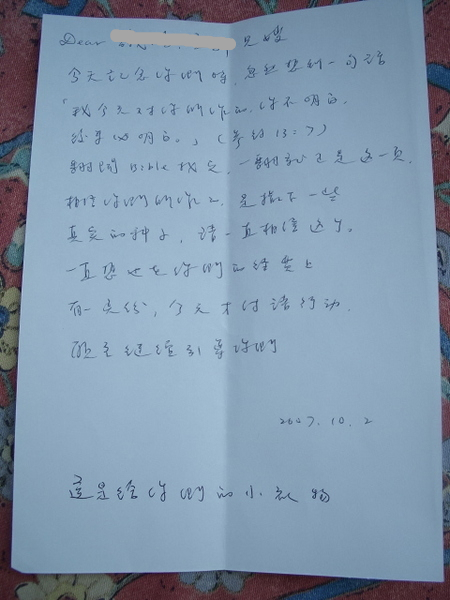 Dear 兄嫂
今天記念你們時,忽然想到一句話
「我今天對你們作的,你不明白,
後來必明白。」(參約13:7)
翻開Bible找它,一翻就正是這一頁。
相信你們所作的,是撒下一些
真實的種子,請一直相信這個。
一直想也在你們的結婚上
有一点份,今天才付諸行動.
願主繼續引導你們
2007.10.2
這是給你們的小禮物